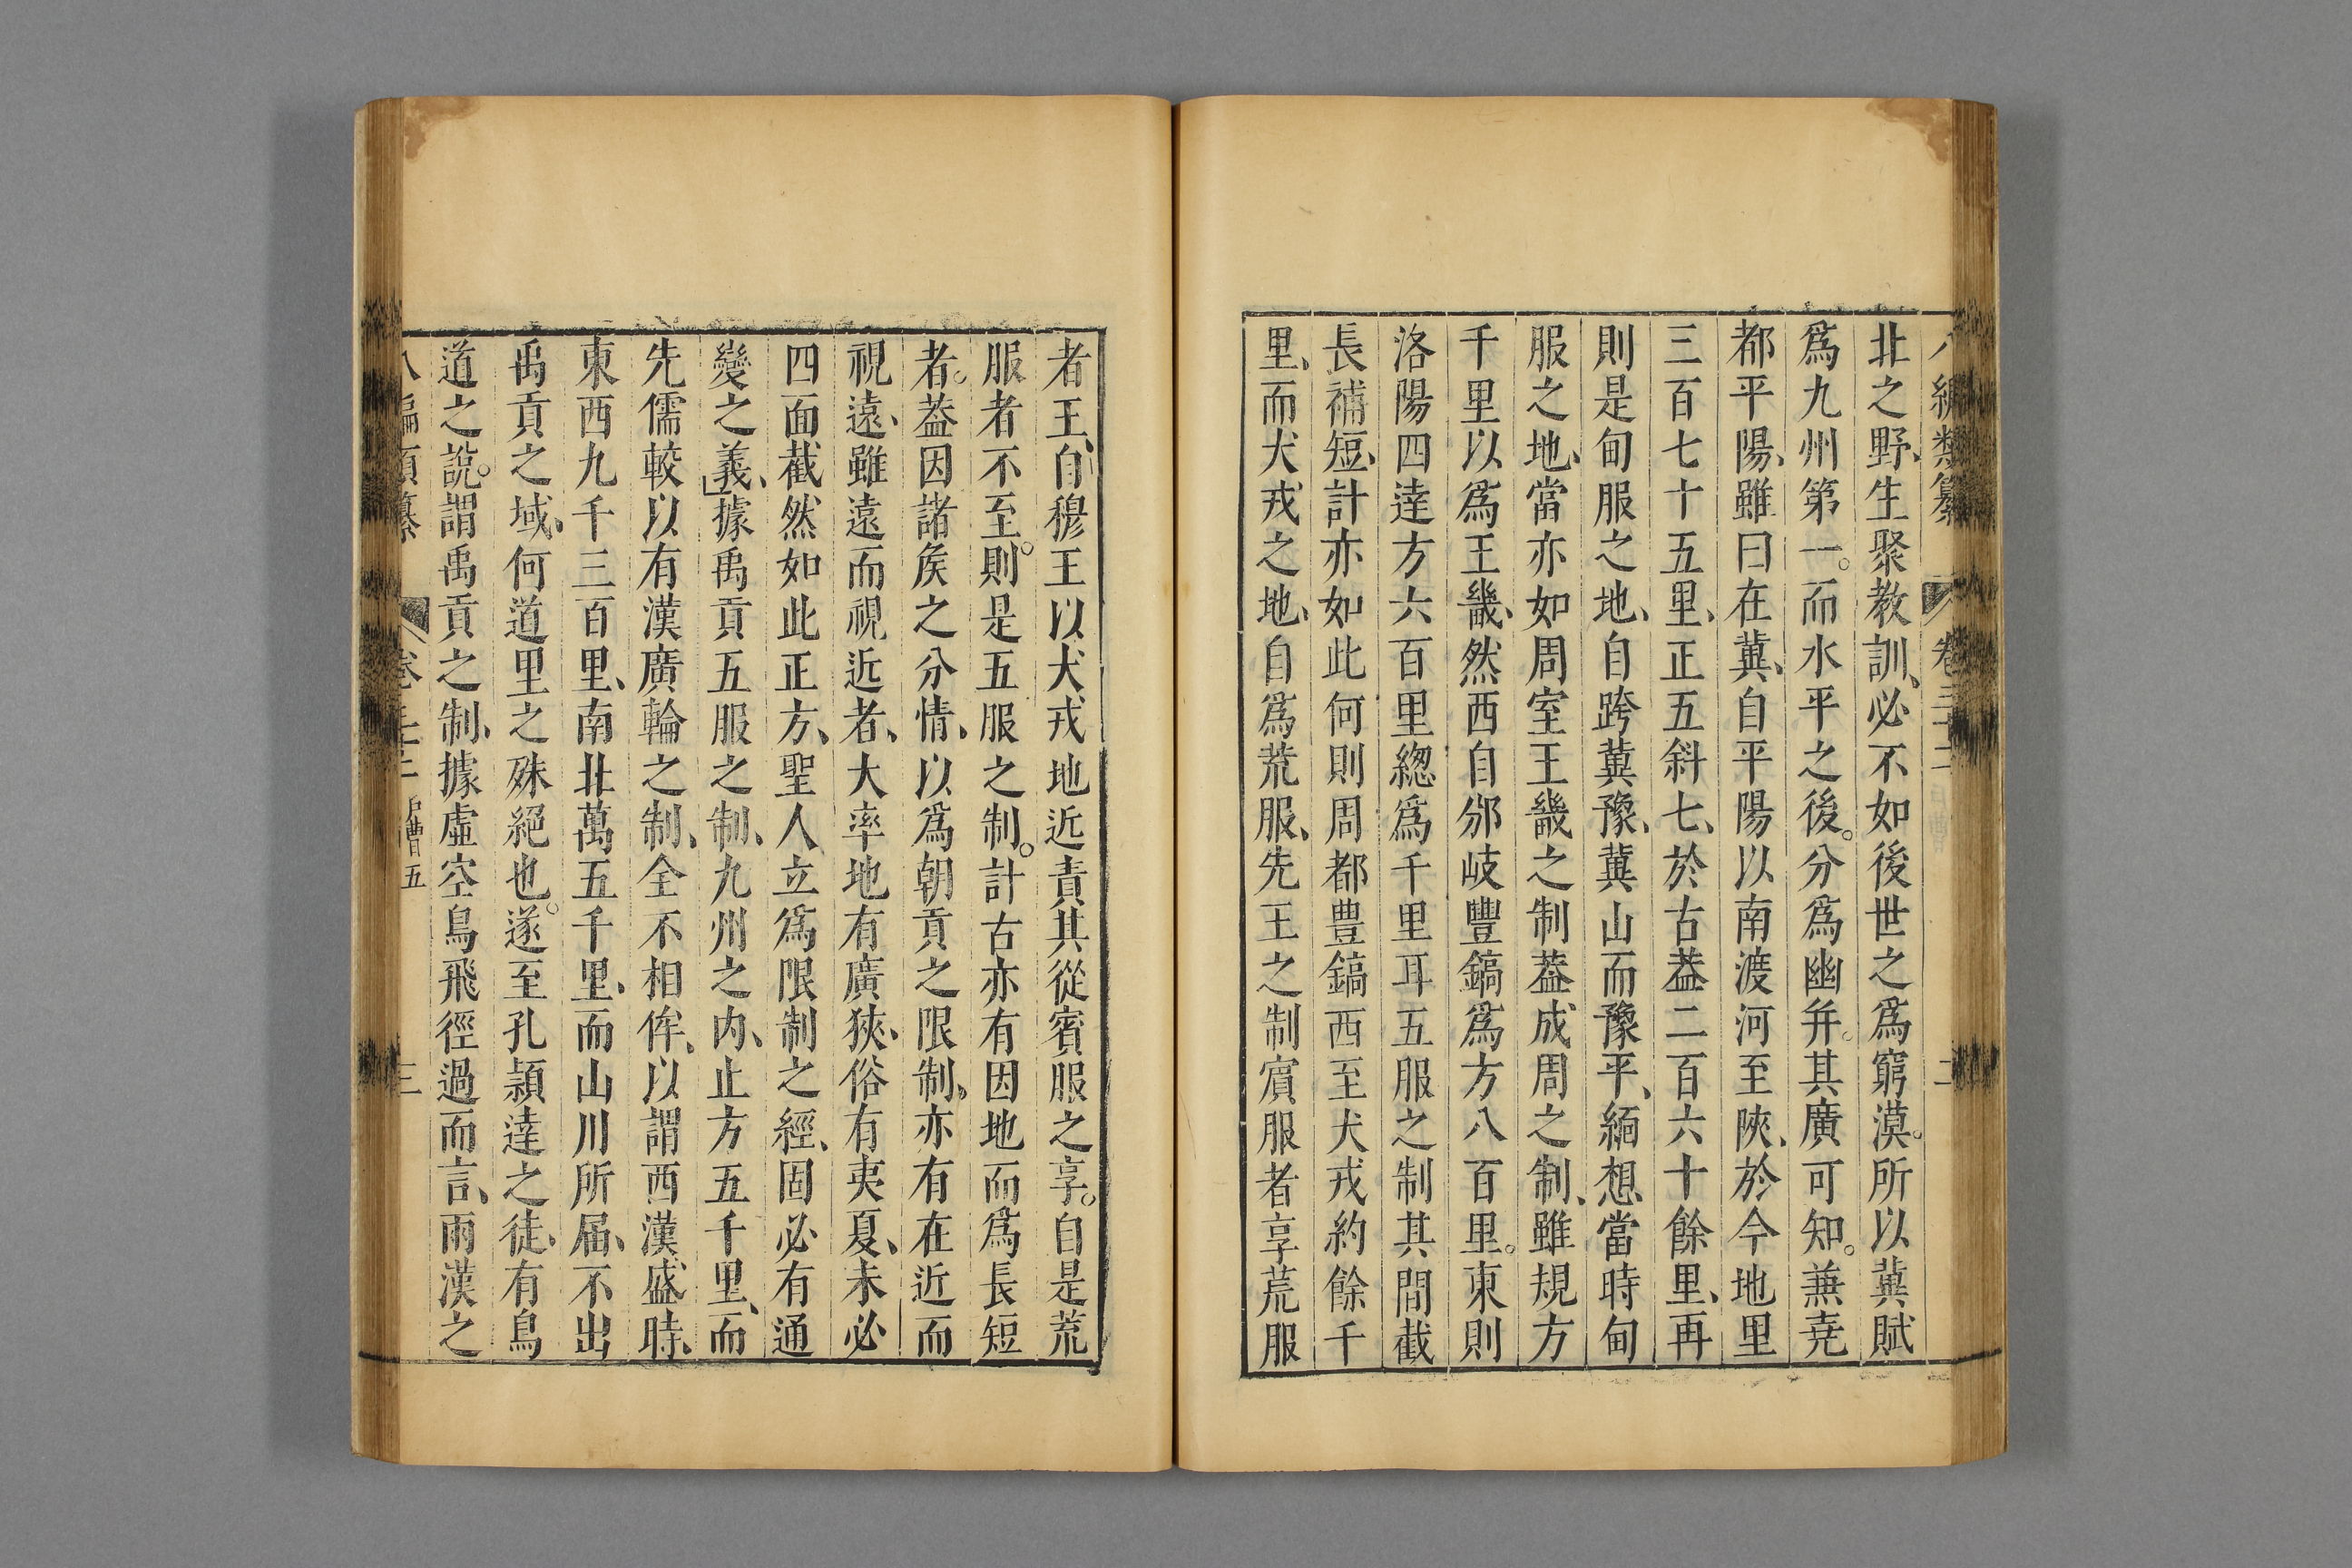 北之野、生聚教訓、必不如後世之爲窮漠。所以冀賦
爲九州第一。而水平之後。分爲幽幷。其廣可知。兼堯
都平陽、雖曰在冀、自平陽以南渡河至陜、於今地里
三百七十五里、正五斜七、於古葢二百六十餘里、再
則是甸服之地、自跨冀豫、冀山而豫平、緬想當時甸
服之地、當亦如周室王畿之制葢成周之制、雖規方
千里以爲王畿、然西自邠岐豐鎬爲方八百里。東則
洛陽四達方六百里緫爲千里耳五服之制其間截
長補短、計亦如此何則周都豊鎬西至犬戎約餘千
里、而犬戎之地、自爲荒服、先王之制賔服者享荒服
者王、自穆王以犬戎地近責其從賓服之享。自是荒
服者不至。則是五服之制。計古亦有因地而爲長短
者。葢因諸矦之分情、以爲朝貢之限制。亦有在近而
視遠、雖遠而視近者、大率地有廣狹、俗有夷夏、未必
四面截然如此正方、聖人立爲限制之經、固必有通
變之義、據禹貢五服之制、九州之内、止方五千里、而
先儒較以有漢廣輪之制、全不相侔、以謂西漢盛時、
東西九千三百里、南北萬五千里、而山川所届、不出
禹貢之域、何道里之殊絕也。遂至孔頴達之徒、有鳥
道之說。謂禹貢之制、據虛空鳥飛徑過而言、兩漢之